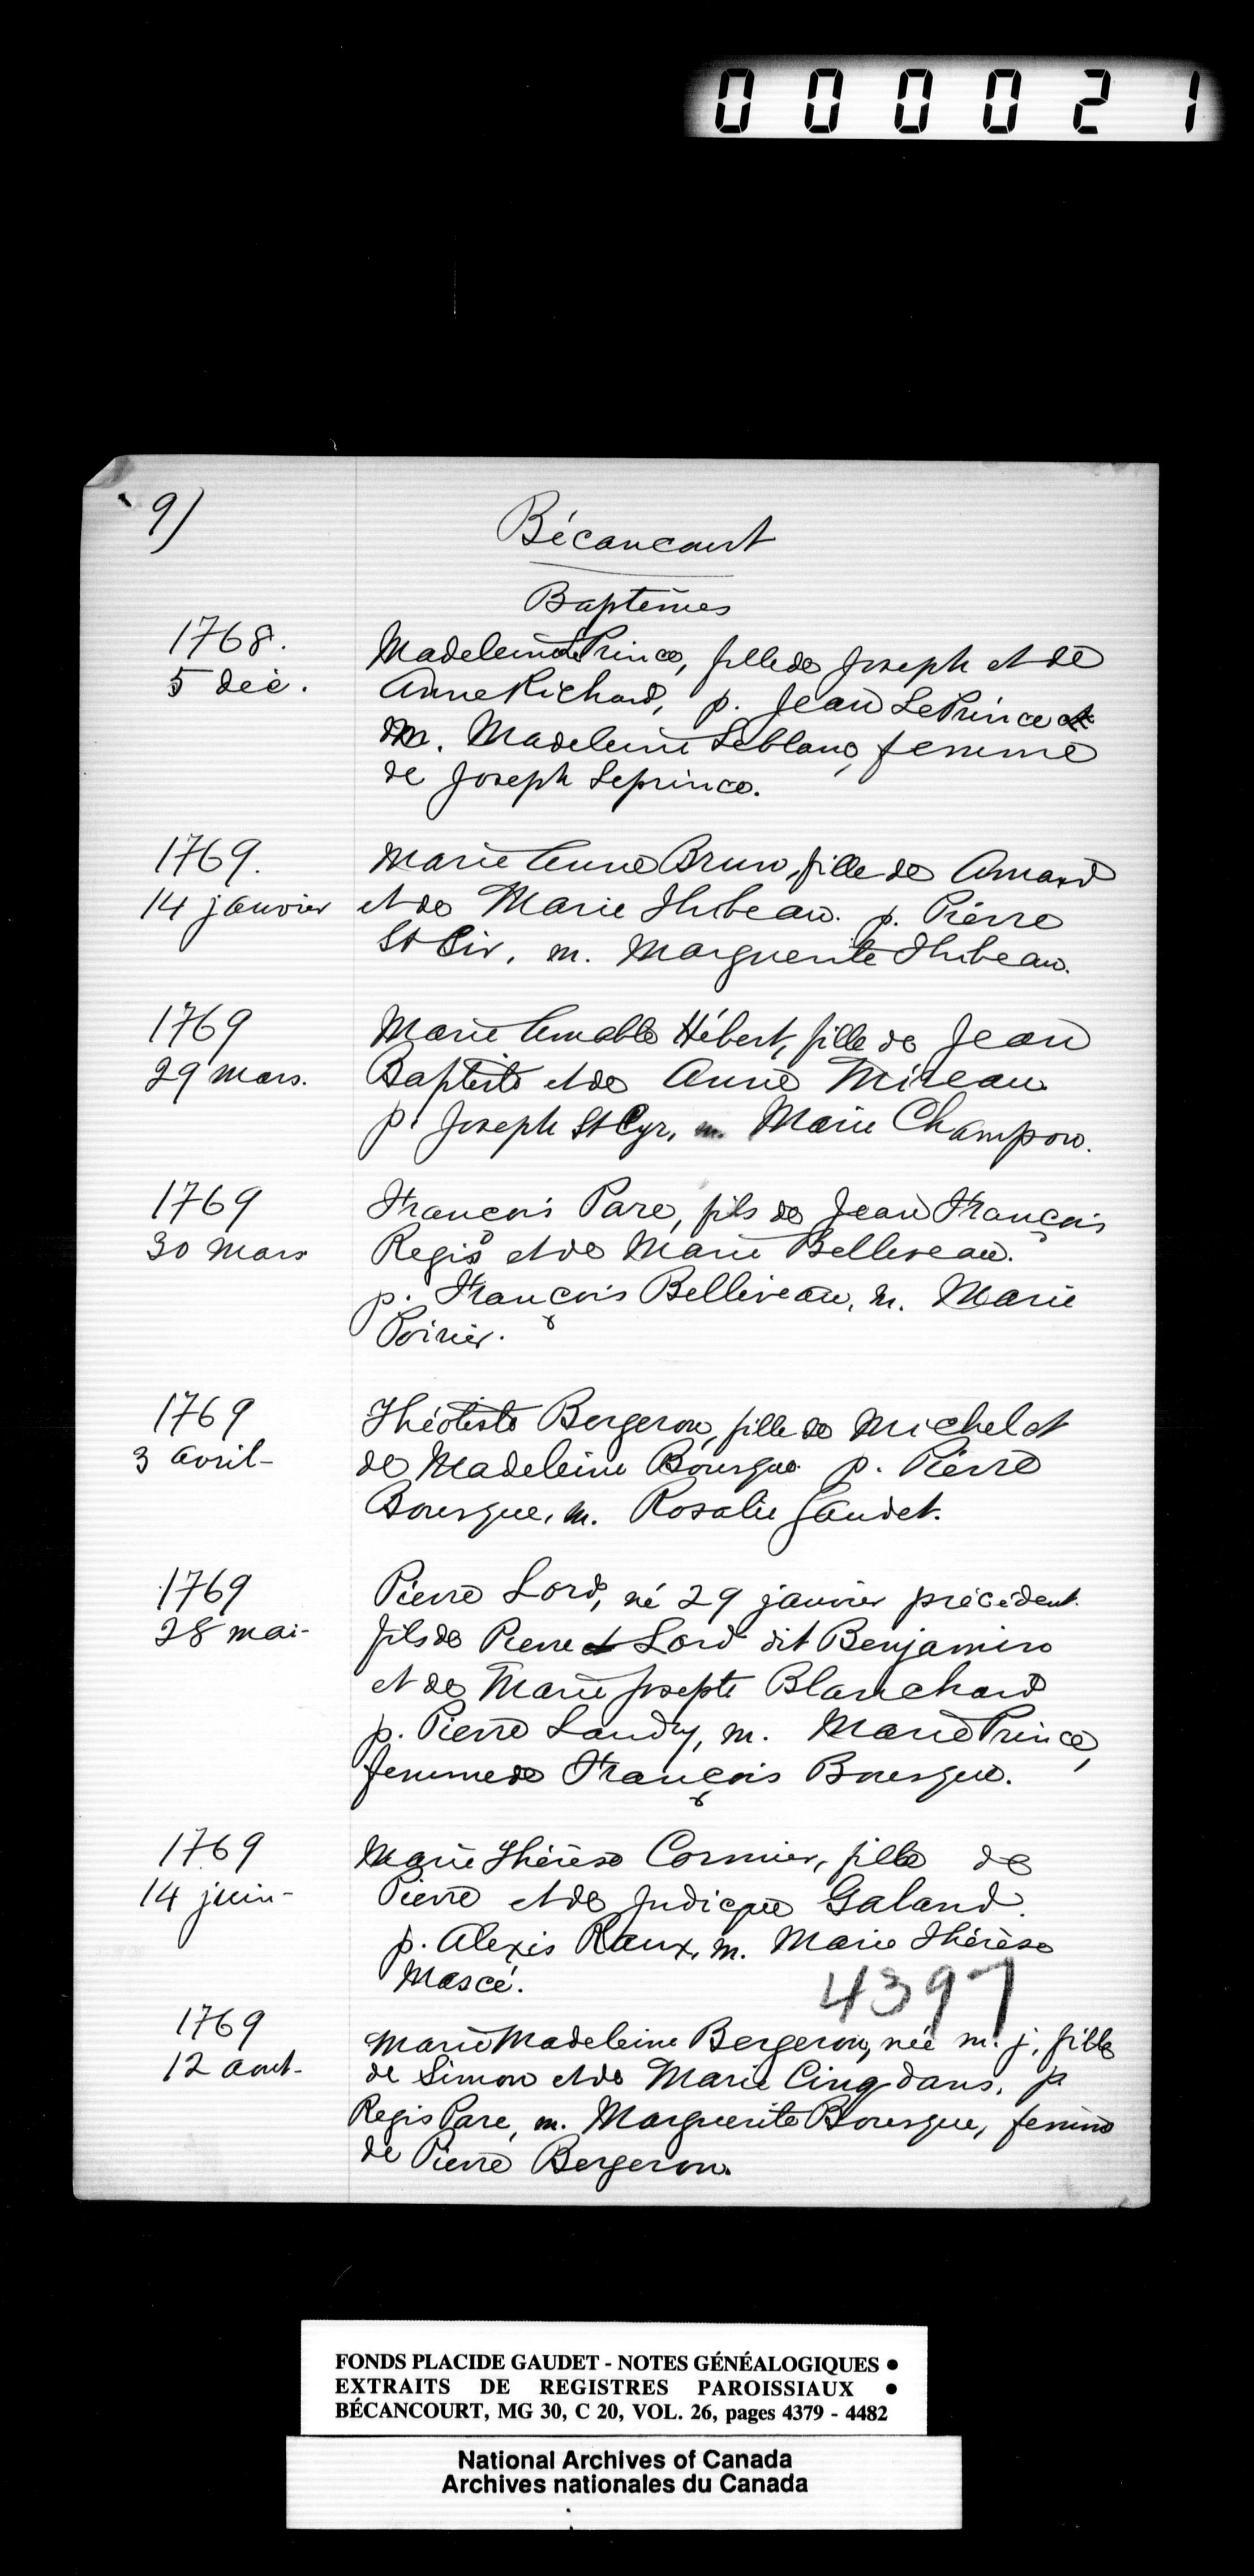 000021
9)
Bécancourt
Baptêmes
1768.
5 déc.
Madeleine LePrince, fille de Joseph et de
Anne Richard, p. Jean LePrince et
m. Madeleine Leblanc, femme
de Joseph Leprince.
1769.
14 janvier
Marie Anne Brun, fille de Amand
et de Marie Thibeau. p. Pierre
St Cir, m. Marguerite Thibeau.
1769
29 mars.
Marie Amable Hébert, fille de Jean
Baptiste et de Anne Mireau
p. Joseph St Cyr, m. Marie Champou.
1769
30 mars
François Pare, fils de Jean François
Regis et de Marie Belliveau.
p. François Belliveau, m. Marie
Poirier.
1769
3 avril-
Théotiste Bergeron, fille de Michel et
de Madeleine Bourque p. Pierre
Bourque, m. Rosalie Gaudet.
1769
28 mai-
Pierre Lord, né 29 janvier précédent.
fils de Pierre Lord dit Benjamin
et de Marie Josepte Blanchard
p. Pierre Landry, m. Marie Prince,
femme de François Bourque.
1769
14 juin-
Marie Thérèse Cormier, fille de
Pierre et de Judicque Galand.
p. Alexis Raux, m. Marie Thérèse
Mascé.
4397
1769
12 aout-
Marie Madeleine Bergeron, née m. j, fille
de Simon et de Marie Cinq dans, p
Regis Pare, m. Marguerite Bourque, femme
de Pierre Bergeron.
FONDS PLACIDE GAUDET - NOTES GÉNÉALOGIQUES •
EXTRAITS DE REGISTRES PAROISSIAUX •
BÉCANCOURT, MG 30, C 20, VOL. 26, pages 4379 - 4482
National Archives of Canada
Archives nationales du Canada